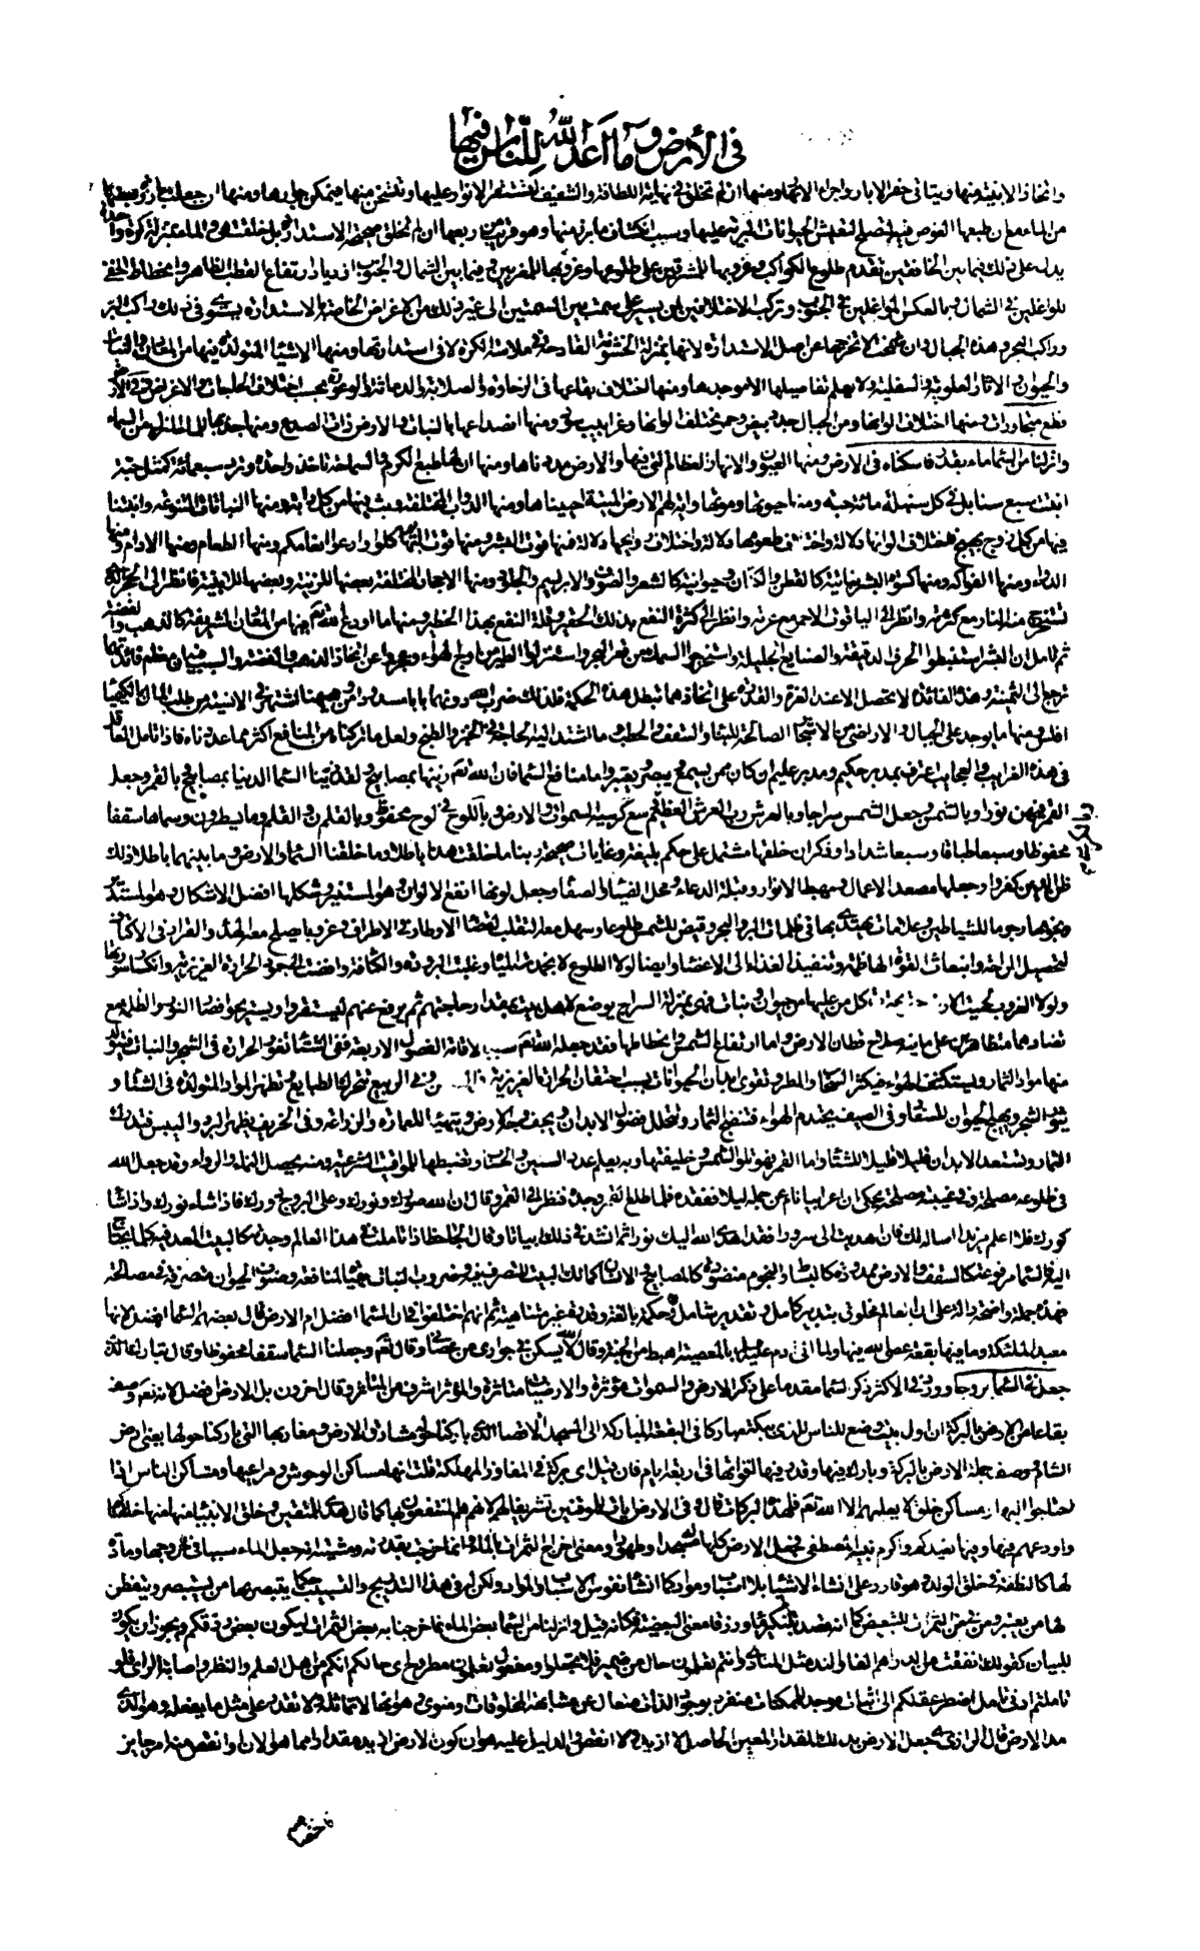 في الأرض وما أعد الله للناس فيها
واتخاذ الابنية منها ويتاتى حفر الابار واجراء الانهار ومنها ان لم تخلق في نهاية اللطافة والشفيف لتستقر الانوار عليها وتتسخن منها فيمكن جلوسها ومنها ان جعلت بارزة بعضها
من الماء مع ان طبعها الغوص فيه لتصلح لتعيش الحيوانات البرية عليها وسبب انكشاف ما برز منها وهو قريب من ربعها ان لم تخلق صحيحة الاستدارة بل خلقت هي والماء بمنزلة كرة واحدة
يدل على ذلك فيما بين الخافقين تقدم طلوع الكواكب وغروبها للمشرقين على طلوعها وغروبها للمغربين وفيما بين الشمال والجنوب ازدياد ارتفاع القطب الظاهر وانحطاط الخفي
للواغلين في الشمال وبالعكس للواغلين في الجنوب وتركب الاختلافين لمن يسير على سمت بين السمتين الى غير ذلك من الاعراض الخاصة بالاستدارة يستوي في ذلك راكب البر
وراكب البحر وهذه الجبال وان شمخت لا تخرجها عن اصل الاستدارة لانها بمنزلة الخشونة القادحة في ملاسة الكرة لا في استدارتها ومنها الاشياء المتولدة فيها من المعادن والنبات
والحيوان الاثار العلوية والسفلية ولا يعلم تفاصيلها الا موجدها ومنها اختلاف بقاعها في الرخاوة والصلابة والدماثة والوعورة بحسب اختلاف الحاجات والاغراض وفي الارض
قطع متجاورات ومنها اختلاف الوانها ومن الجبال جدد بيض وحمر مختلف الوانها وغرابيب سود ومنها انصداعها بالنبات والارض ذات الصدع ومنها جذبها للماء المنزل من السماء
وانزلنا من السماء ماء بقدر فاسكناه في الارض ومنها العيون والانهار العظام التي فيها والارض مددناها ومنها ان لها طبع الكرم والسماحة تاخذ واحدة وترد سبعمائة كمثل حبة
انبتت سبع سنابل في كل سنبلة مائة حبة ومنها حيوتها وموتها واية لهم الارض الميتة احييناها ومنها الدواب المختلفة وبث فيها من كل دابة ومنها النباتات المتنوعة وانبتنا
فيها من كل زوج بهيج فاختلاف الوانها دلالة واختلاف طعومها دلالة واختلاف روايحها دلالة فمنها قوت البشر ومنها قوت البهائم كلوا وارعوا انعامكم ومنها الطعام ومنها الادام ومنها
الدواء ومنها الفواكه ومنها كسوة البشر نباتية كالقطن والكتان وحيوانية كالشعر والصوف والابريسم والجلود ومنها الاحجار المختلفة بعضها للزينة وبعضها للابنية فانظر الى الحجر الذي
تستخرج منه النار مع كثرته وانظر الى الياقوت الاحمر مع عزته وانظر الى كثرة النفع بذلك الحقير وقلة النفع بهذا الخطير ومنها ما اودع الله تعم فيها من المعادن الشريفة كالذهب والفضة
ثم تامل ان البشر استنبطوا الحرف الدقيقة والصنايع الجليلة واستخرجوا السمك من قعر البحر واستنزلوا الطير من اوج الهواء وعجزوا عن اتخاذ الذهب والفضة والسبب فيه ان معظم فائدتهما
ترجع الى الثمنية وهذه الفائدة لا تحصل الا عند العزة والقدرة على اتخاذهما تبطل هذه الحكمة فلذلك ضرب الله دونهما بابا مسدودا ومن هيهنا اشتهر في الالسنة من طلب المال بالكيميا
افلس ومنها ما يوجد على الجبال والاراضي من الاشجار الصالحة للبناء والسقف والحطب وما اشتد اليه الحاجة في الخبز والطبخ ولعل ما تركناه من المنافع اكثر مما عددناه فاذا تامل العاقل
في هذه الغرايب والعجايب اعترف بمدبر حكيم ومقدر عليم ان كان ممن يسمع ويبصر ويعتبر واما منافع السماء فان الله تعم زينها بمصابيح ولقد زينا السماء الدنيا بمصابيح وبالقمر وجعل
القمر فيهن نورا وبالشمس وجعل الشمس سراجا وبالعرش رب العرش العظيم وبالكرسي وسع كرسيه السموات والارض وباللوح في لوح محفوظ وبالقلم ن والقلم وما يسطرون وسماها سقفا
محفوظا وسبعا طباقا وسبعا شدادا وذكر ان خلقها مشتمل على حكم بليغة وغايات صحيحة ربنا ما خلقت هذا باطلا وما خلقنا السماء والارض وما بينهما باطلا ذلك
ظن الذين كفروا وجعلها مصعد الاعمال ومهبط الانوار وقبلة الدعاء ومحل الضياء والصفاء وجعل لونها انفع الالوان وهو المستنير وشكلها افضل الاشكال وهو المستدير
ونجومها رجوما للشياطين وعلامات يهتدى بها في ظلمات البر والبحر وقيض للشمس طلوعا وسهل معه التقلب لقضاء الاوطار في الاطراف وغروبا يصلح معه الهدو والقرار في الاكناف
لتحصيل الراحة وانبعاث القوة الهاضمة وتنفيذ الغذاء الى الاعضاء وايضا لولا الطلوع لانجمدت المياه وغلبت البرودة والكثافة وافضت الى جمود الحرارة الغريزية وانكسار سورتها
ولولا الغروب لحميت الارض كل من عليها من حيوان ونبات فهي بمنزلة السراج يوضع لاهل بيت بمقدار حاجتهم ثم يرفع عنهم ليستقروا ويستريحوا فصار النور والظلمة مع
تضادهما متظاهرين على ما فيه صلاح قطان الارض واما ارتفاع الشمس وانحطاطها فقد جعله الله تعم سببا لاقامة الفصول الاربعة ففي الشتاء تغور الحرارة في الشجر والنبات فيتولد
منها مواد الثمار ويستكثف الهواء فيكثر السحاب والمطر وتقوى ابدان الحيوانات بسبب احتقان الحرارة الغريزية في البواطن وفي الربيع تتحرك الطبايع وتظهر المواد المتولدة في الشتاء و
يثور الشجر ويهيج الحيوان للسفاد وفي الصيف يحتدم الهواء فتنضج الثمار وتتحلل فضول الابدان ويجف وجه الارض ويتهيأ للعمارة والزراعة وفي الخريف يظهر البرد واليبس فيدرك
الثمار وتستعد الابدان قليلا قليلا للشتاء واما القمر فهو تلو الشمس وخليفتها وبه يعلم عدد السنين والحساب ويضبط المواقيت الشرعية ومنه يحصل النماء والرواء وقد جعل الله
في طلوعه مصلحة وفي غيبته مصلحة يحكى ان اعرابيا نام عن جمله ليلا ففقده فلما طلع القمر وجده فنظر الى القمر وقال ان الله صورك ونورك وعلى البروج دورك فاذا شاء نورك واذا شاء
كورك فلا اعلم مزيدا اساله لك فان اهديت الى سرورا فقد اهدى الله اليك نورا ثم انشد في ذلك ابياتا وقال الجاحظ اذا تاملت في هذا العالم وجدته كالبيت المعد فيه كل ما يحتاج
اليه فالسماء مرفوعة كالسقف والارض ممدودة كالبساط والنجوم منضودة كالمصابيح والانسان كمالك البيت المتصرف فيه وضروب النبات مهيأة لمنافعه وصنوف الحيوان متصرفة في مصالحه
فهذه جملة واضحة دالة على ان العالم مخلوق بتدبير كامل وتقدير شامل وحكمة بالغة وقدرة غير متناهية ثم انهم اختلفوا في ان السماء افضل ام الارض قال بعضهم السماء افضل لانها
معبد الملئكة وما فيها بقعة عصي الله فيها ولما اتى ادم عليه السلم بالمعصية اهبط من الجنة وقال الله لا يسكن في جواري من عصاني وقال تعم وجعلنا السماء سقفا محفوظا وقال تبارك الذي
جعل في السماء بروجا وورد في الاكثر ذكر السماء مقدما على ذكر الارض والسموات مؤثرة والارضيات متاثرة والمؤثر اشرف من المتاثر وقال اخرون بل الارض افضل لانه تعم وصف
بقاعا من الارض بالبركة ان اول بيت وضع للناس للذي ببكة مباركا في البقعة المباركة الى المسجد الاقصا الذي باركنا حوله مشارق الارض ومغاربها التي باركنا حولها يعني ارض
الشام ووصف جملة الارض بالبركة وبارك فيها وقدر فيها اقواتها في اربعة ايام فان قيل اي بركة في المفاوز المهلكة قلت انها مساكن الوحوش ومراعيها ومساكن الناس اذا
احتاجوا اليها ومساكن خلق لا يعلمهم الا الله تعم فلهذه البركات قال وفي الارض ايات للموقنين تشريفا لهم لانهم هم المنتفعون بها كما قال هدى للمتقين وخلق الانبياء منها منها خلقناكم
واودعهم فيها وفيها نعيدكم واكرم نبيه المصطفى فجعل الارض كلها له مسجدا وطهورا ومعنى اخراج الثمرات بالماء وانما خرجت بقدرته ومشيته انه جعل الماء سببا في خروجها ومادة
لها كالنطفة في خلق الولد وهو قادر على انشاء الاشياء بلا اسباب ومواد كما انشأ نفوس الاسباب والمواد ولكن له في هذا التدريج والتسبيب حكما يتبصر بها من يستبصر ويتفطن
لها من يعتبر ومن في من الثمرات للتبعيض كما انه قصد بتنكير ماء ورزقا معنى البعضية فكانه قيل وانزلنا من السماء بعض الماء فاخرجنا به بعض الثمرات ليكون بعض رزقكم ويجوز ان يكون
للبيان كقولك انفقت من الدراهم الفا والند المثل المناوي وانتم تعلمون حال من ضمير فلا تجعلوا ومفعول تعلمون مطروح اي حالكم انكم من اهل العلم والنظر واصابة الراي فلو
تاملتم ادنى تامل اضطر عقلكم الى اثبات موجد للممكنات متفرد بوجوب الذات متعال عن مشابهة المخلوقات او منوي وهو انها لا تماثله ولا تقدر على مثل ما يفعله وهو الذي
مد الارض قال الرازي جعل الارض بذلك المقدار المعين الحاصل لا ازيد ولا انقص والدليل عليه هو ان كون الارض ازيد مقدارا مما هو الان او انقص منه امر جايز